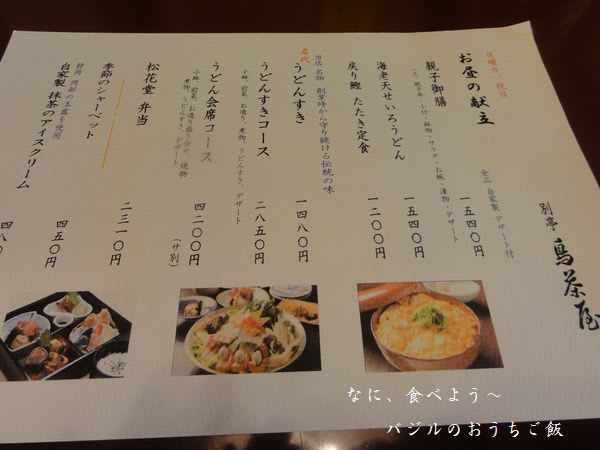 別亭 鳥茶屋
日曜日、祝日
お昼の献立
全品 自家製 デザート付
親子御膳 一五四〇円
(上)親子丼・小付・鉢物・サラダ・お椀・漬物・デザート
海老天せいろうどん 一五四〇円
戻り鰹 たたき定食 一二〇〇円
当店 名物 創業時から守り続ける伝統の味
名代 うどんすき 一四八〇円
うどんすきコース 二八五〇円
小鉢、前菜、お造り、煮物、うどんすき、デザート
うどん会席コース 四二〇〇円
(サ別)
小鉢、前菜、お造り盛り合せ、焼物
煮物、うどんすき、デザート
松花堂 弁当 二三一〇円
季節のシャーベット 四五〇円
静岡 岡部の玉露を使用
自家製 抹茶のアイスクリーム 四八〇
なに、食べよう～
バジルのおうちご飯